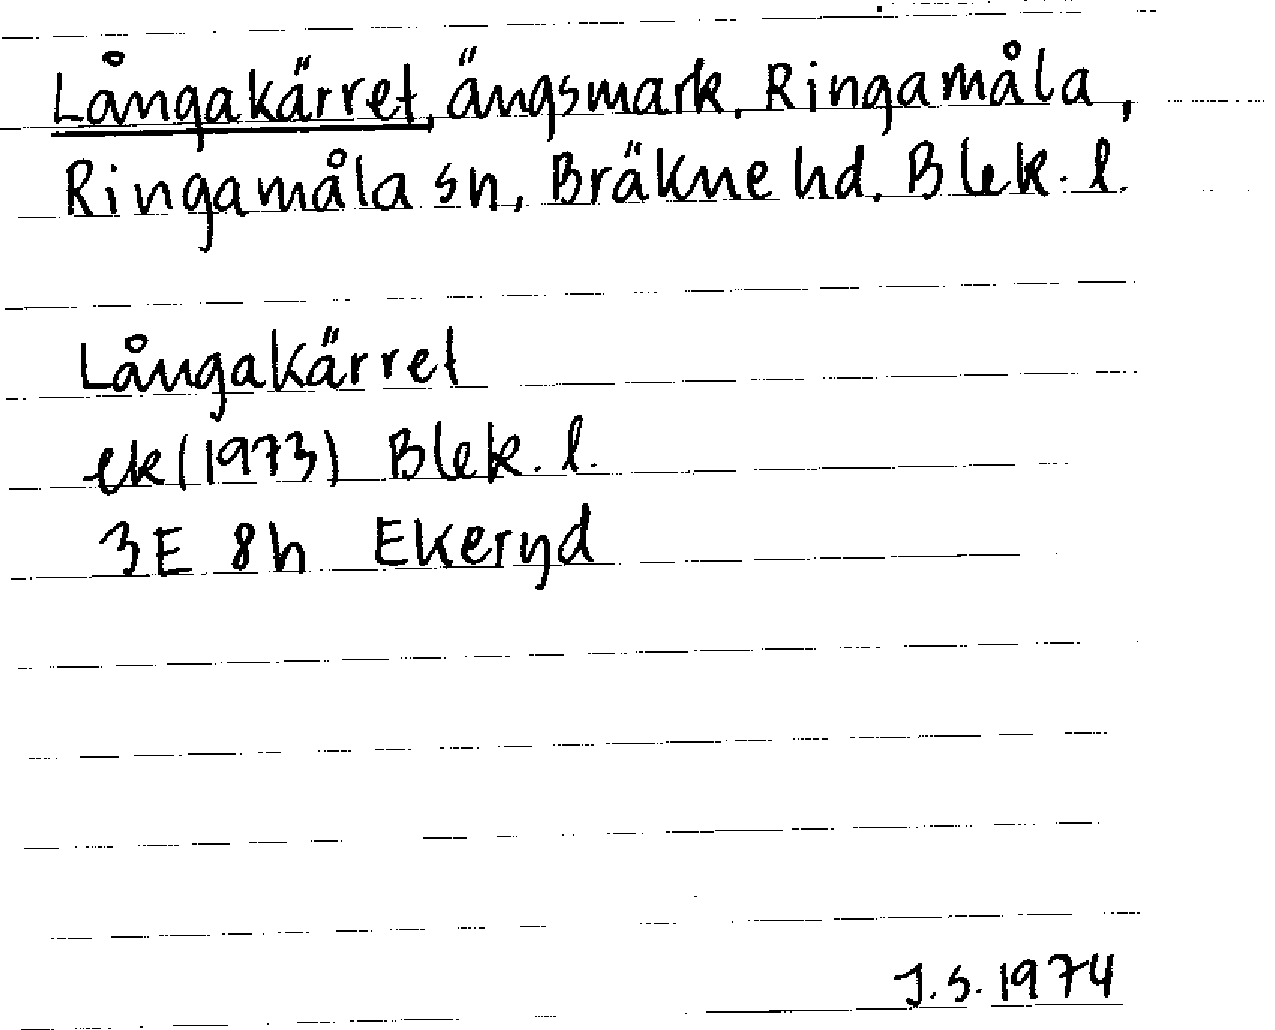 Långakärret, ängsmark, Ringamåla,
Ringamåla sn, Bräkne hd. Blek. l.
Långakärret
ek (1973) Blek. l.
3E 8h Ekeryd
J.S. 1974